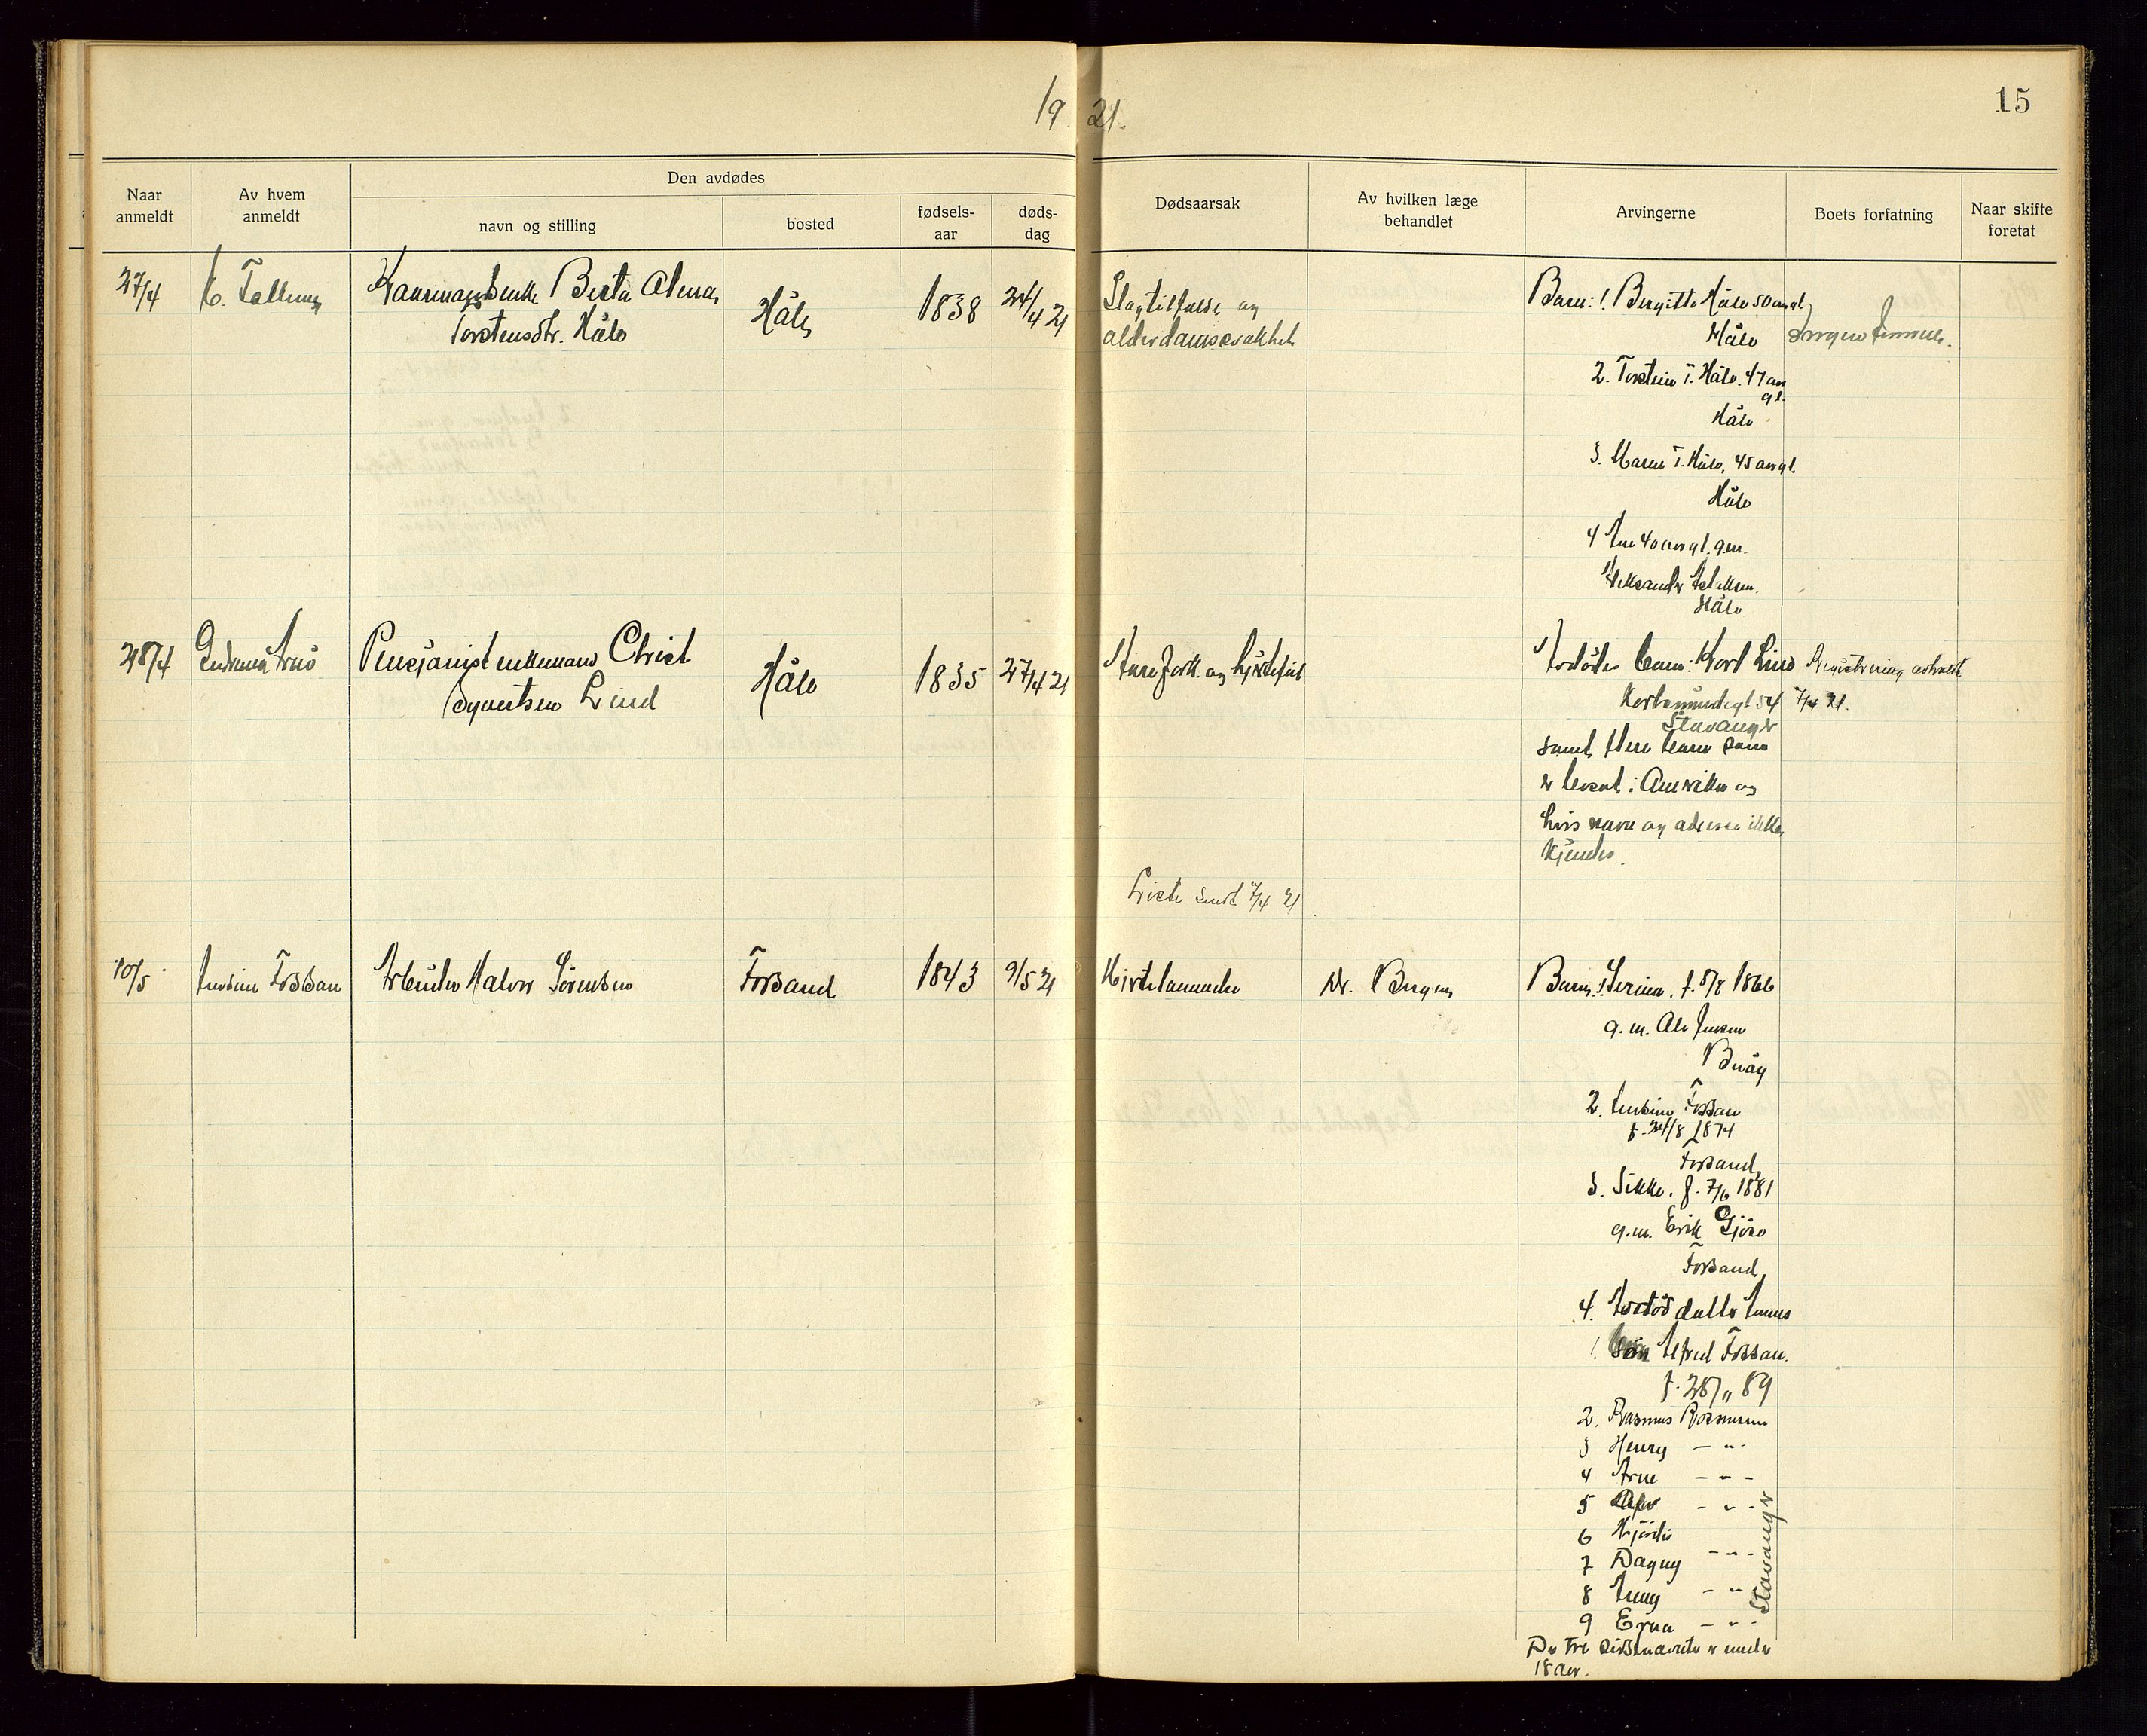 19 21.
15
Naar anmeldt
Av hvem anmeldt
Den avdødes
navn og stilling
bosted
fødsels-aar
døds-dag
Dødsaarsak
Av hvilken læge behandlet
Arvingerne
Boets forfatning
Naar skifte foretat
27/4
Kaarmandsenke Berta Alena
Torstensdtr. Håle
Håle
1838
24/4 21
Slagtilfælde og
alderdomssvakhet
Barn: 1. Bergitte Håle 50 aar gl.
Håle
Ingen formue.
2. Torstein T. Håle. 47 aar
gl.
Håle
3. Maren T. Håle, 45 aar gl.
Håle
4 Ane 40 aar gl. g.m.
Håle
28/4
Pensjonist enkemand Christ
Syvertsen Lind
Håle
1835
27/4 21
Aarefork. og hjertefeil
Avdødes barn: Karl Lind
Registrering avholdt
54
7/4 21.
Stavanger
samt flere barn som
er bosat i Amerika og
hvis navn og adresse ikke
kjendes.
Liste sendt 7/4 21
10/5
Fossan
Arbeider Halvor Sørensen
Forsand
1843
9/5 21
Hjertelammelse
Dr. Bergen
Barn: 1. Serina. f. 8/8 1866
g. m. Ole Jensen
2. Fossan
f. 24/8 1874
Forsand
3. Sikke. f. 7/6 1881
g.m. Erik Gjøse
Forsand
4. Avdød datter
1. Søn Alfred Fossan.
f. 28/11 89
2. Rasmus Rasmussen
3 Henry - " -
4 Arne - " -
5 Olav - " -
6 Hjørdis
7 Dagny - " -
8 Jenny - " -
9 Erna - " -
Stavanger
De tre sidstnævnte er under
18 aar.